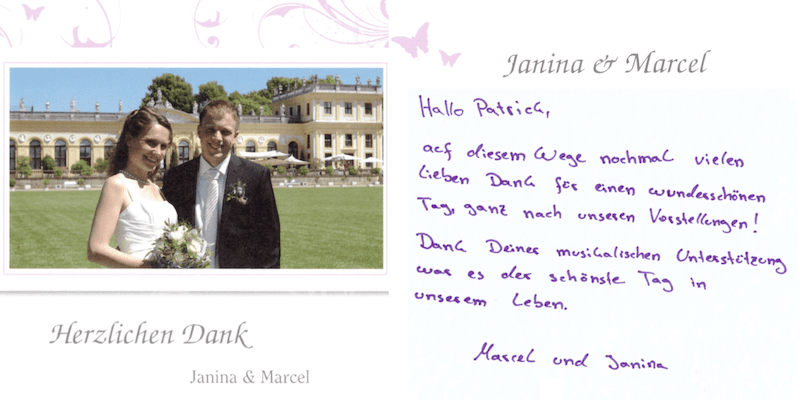 Herzlichen Dank
Janina & Marcel
Janina & Marcel
Hallo Patrick,
auf diesem Wege nochmal vielen
lieben Dank für einen wunderschönen
Tag, ganz nach unseren Vorstellungen!
Dank Deiner musikalischen Unterstützung
war es der schönste Tag in
unserem Leben.
Marcel und Janina